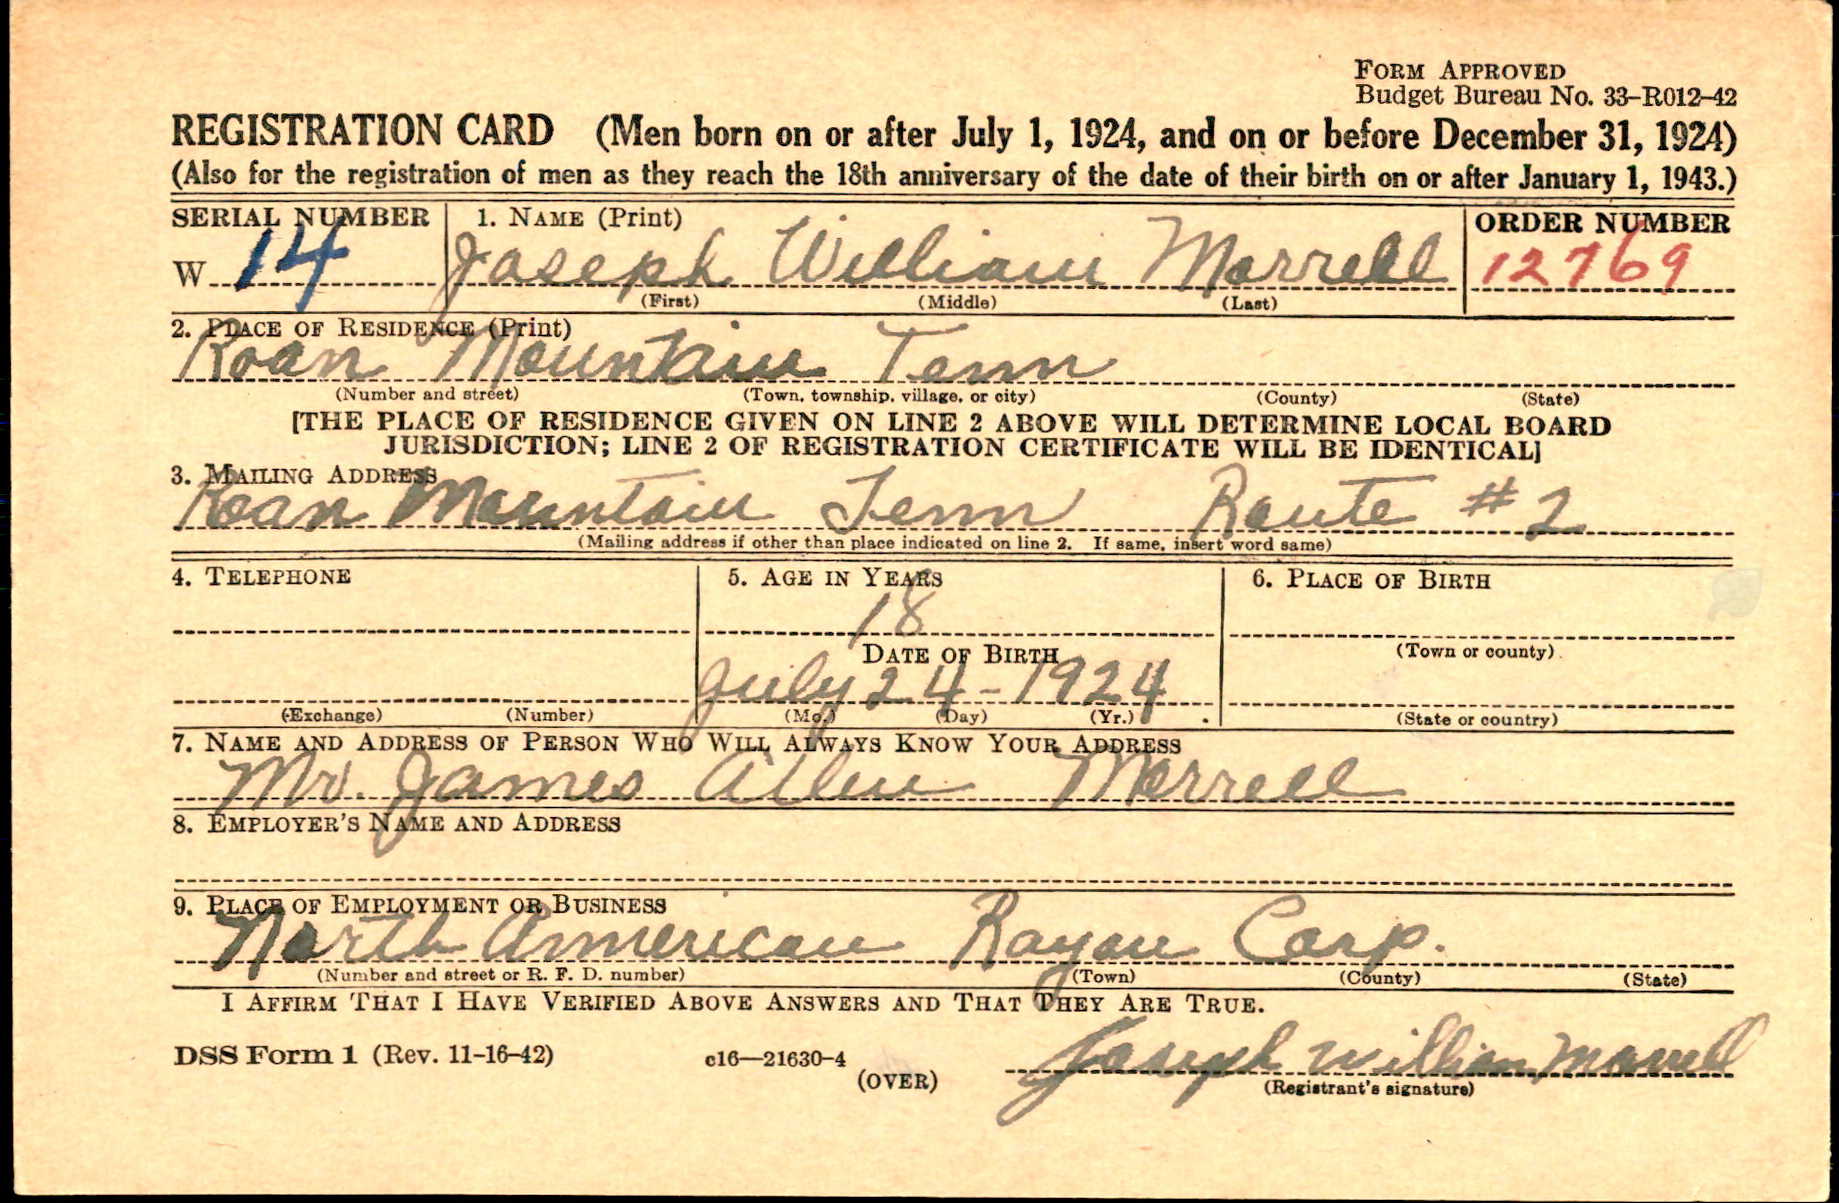 FORM APPROVED
Budget Bureau No. 33-R012-42
REGISTRATION CARD (Men born on or after July 1, 1924, and on or before December 31, 1924)
(Also for the registration of men as they reach the 18th anniversary of the date of their birth on or after January 1, 1943.)
SERIAL NUMBER 1. NAME (Print) ORDER NUMBER
W 14 Joseph William Morrell 12769
(First) (Middle) (Last)
2. PLACE OF RESIDENCE (Print)
Roan Mountain Tenn
(Number and street) (Town, township, village, or city) (County) (State)
[THE PLACE OF RESIDENCE GIVEN ON LINE 2 ABOVE WILL DETERMINE LOCAL BOARD
JURISDICTION; LINE 2 OF REGISTRATION CERTIFICATE WILL BE IDENTICAL]
3. MAILING ADDRESS
Roan Mountain Tenn Route #2
(Mailing address if other than place indicated on line 2. If same, insert word same)
4. TELEPHONE 5. AGE IN YEARS 6. PLACE OF BIRTH
18
DATE OF BIRTH (Town or county)
July 24-1924
(Exchange) (Number) (Mo.) (Day) (Yr.) (State or country)
7. NAME AND ADDRESS OF PERSON WHO WILL ALWAYS KNOW YOUR ADDRESS
Mr. James Allen Morrell
8. EMPLOYER'S NAME AND ADDRESS
9. PLACE OF EMPLOYMENT OR BUSINESS
North American Rayon Corp.
(Number and street or R. F. D. number) (Town) (County) (State)
I AFFIRM THAT I HAVE VERIFIED ABOVE ANSWERS AND THAT THEY ARE TRUE.
DSS Form 1 (Rev. 11-16-42) c16—21630-4 Joseph William Morrell
(OVER) (Registrant's signature)